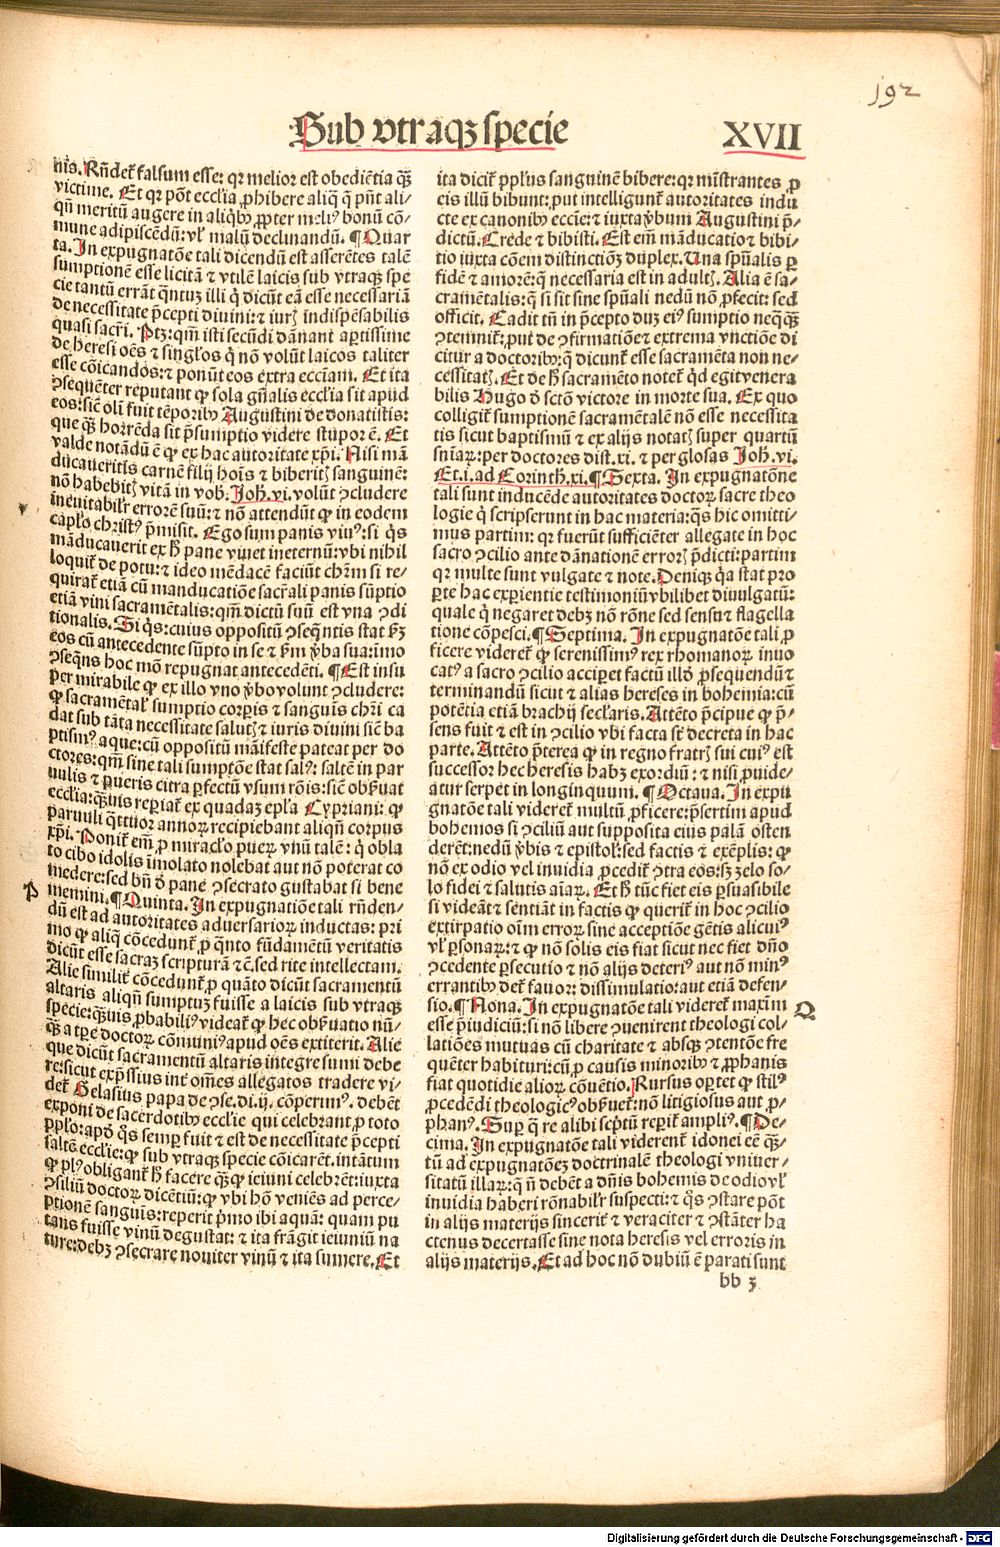 192
Sub vtraqꝫ specie
XVII
nis. Rñdet̃ falsum esse: qꝛ melior est obediẽtia q̃ꝫ
victime. Et qꝛ põt eccl̃ia ꝓhibere aliq̃ q̃ pñt ali-
qñ meritũ augere in aliqͥbꝰ ꝓpter meliꝰ bonũ cõ-
mune adipiscẽdũ: vl̃ malũ declinandũ. ¶ Quar
ta. In expugnatõe tali dicendũ est asserẽtes talẽ
sumptionẽ esse licitã ⁊ vtilẽ laicis sub vtraqꝫ spe
cie tantũ errãt q̃ntuꝫ illi q̃ dicũt eã esse necessariã
de necessitate p̃cepti diuini: ⁊ iurꝭ indispẽsabilis
quasi sacr̃i. Ptꝫ: qm̃ isti secũdi dãnant aꝑtissime
de heresi oẽs ⁊ singl̃os q̃ nõ volũt laicos taliter
esse cõicandos: ⁊ ponũt eos extra eccl̃iam. Et ita
ↄsequẽter reputant ꝙ sola gñalis eccl̃ia sit apud
eos: sic̃ oli᷑ fuit tẽporibꝰ Augustini de donatistis:
que q̃ꝫ horrẽda sit p̃sumptio videre stupor ẽ. Et
valde notãdũ ẽ ꝙ ex hac autoritate xp̃i. Nisi mã
ducaueritis carnẽ filij hoĩs ⁊ biberitꝭ sanguinẽ:
nõ habebitꝭ vitã in vob. Joh̃. vi. volũt ↄcludere
ineuitabilr̃ errorẽ suũ: ⁊ nõ attendũt ꝙ in eodem
capl̃o christꝰ p̃misit. Ego sum panis viuꝰ: si q̃s
mãducauerit ex h̃ pane viuet ineternũ: vbi nihil
loquit̃ de potu: ⁊ ideo mẽdacẽ faciũt chr̃m si re-
quirat̃ etiã cũ manducatiõe sacr̃ali panis sũptio
etiã vini sacramẽtalis: qm̃ dictũ suũ est vna ↄdi
tionalis. Si q̃s: cuius oppositũ ↄseq̃ntis stat ẽꝫ
eos cũ antecedente sũpto in se ⁊ ẽm ỹba sua: imo
ↄseq̃ns hoc mõ repugnat antecedẽti. ¶ Est insu
ꝑ mirabile ꝙ ex illo vno ỹbo volunt ↄcludere:
ꝙ sacramẽtal̃ sumptio corꝑis ⁊ sanguis chr̃i ca
dat sub tãta necessitate salutꝭ ⁊ iuris diuini sic̃ ba
ptismꝰ aque: cũ oppositũ mãifeste pateat per do
ctores: qm̃ sine tali sumptõe stat salꝰ: saltẽ in par
uulis ⁊ pueris citra ꝑfectũ vsum rõis: sic̃ obẽuat
eccl̃ia: q̃ꝫuis reꝑiat̃ ex quadaꝫ epl̃a Cypriani: ꝙ
paruuli q̃ttuor annoꝝ recipiebant aliqñ corpus
xp̃i. Ponit̃ em̃ ꝓ miracl̃o pueꝝ vnũ talẽ: q̃ obla
to cibo idolis im̃olato nolebat aut nõ poterat co
medere: sed bñ ð pane ↄsecrato gustabat si bene
memini. ¶ Quinta. In expugnatiõe tali rñden-
dũ est ad autoritates aduersarioꝝ inductas: pri
mo ꝙ aliq̃ cõcedunt̃ ꝓ q̃nto fũdamẽtũ veritatis
dicũt esse sacraꝫ scripturã ⁊c̃. sed rite intellectam.
Alie similit̃ cõcedunt̃ ꝓ quãto dicũt sacramentũ
altaris aliqñ sumptuꝫ fuisse a laicis sub vtraqꝫ
specie: q̃ꝫuis ꝓbabiliꝰ videat̃ ꝙ hec obẽuatio nũ-
q̃ꝫ a tꝑe doctoꝝ cõmuniꝰ apud oẽs extiterit. Alie
que dicũt sacramentũ altaris integre sumi debe
re: sicut exp̃ssius int̃ om̃es allegatos tradere vi-
det̃ Gelasius papa de ↄse. di. ij. cõperimꝰ. debẽt
exponi de sacerdotibꝰ eccl̃ie qui celebrant ꝓ toto
ppl̃o: apð q̃s semꝑ fuit ⁊ est de necessitate p̃cepti
saltẽ eccl̃ie: ꝙ sub vtraqꝫ specie cõicarẽt. intãtum
ꝙ plꝰ obligant̃ h̃ facere q̃ꝫ ꝙ ieiuni celebrẽt: iuxta
ↄsiliũ doctoꝝ dicẽtiũ: ꝙ vbi hõ veniẽs ad perce-
ptionẽ sanguĩs: reperit p̃mo ibi aquã: quam pu
tans fuisse vinũ degustat: ⁊ ita frãgit ieiuniũ na
ture: debꝫ ↄsecrare nouiter vinũ ⁊ ita sumere. Et
P
ita dicit̃ ppl̃us sanguinẽ bibere: qꝛ mĩstrantes ꝓ
eis illũ bibunt: put intelligunt̃ autoritates indu
cte ex canonibꝰ eccl̃ie: ⁊ iuxta ỹbum Augustini p̃-
dictũ. Crede ⁊ bibisti. Est em̃ mãducatio ⁊ bibi-
tio iuxta cõem distinctionẽ duplex. Una spũalis ꝑ
fidẽ ⁊ amorẽ: q̃ necessaria est in adultꝭ. Alia ẽ sa-
cramẽtalis: q̃ si sit sine spũali nedũ nõ ꝓfecit: sed
officit. Cadit tñ in p̃cepto duꝫ eiꝰ sumptio neqq̃ꝫ
ↄtemnit̃: put de ↄfirmatiõe ⁊ extrema vnctiõe di
citur a doctoribꝰ: q̃ dicunt̃ esse sacramẽta non ne-
cessitatꝭ. Et de h̃ sacramẽto notet̃ q̃d egit venera
bilis Hugo ð sctõ victore in morte sua. Ex quo
colligit̃ sumptionẽ sacramẽtalẽ nõ esse necessita
tis sicut baptismũ ⁊ ex alijs notatꝭ super quartũ
sñiaꝝ: per doctores dist. xi. ⁊ per glosas Joh̃. vi.
Et. i. ad Corinth̃. xi. ¶ Sexta. In expugnatõne
tali sunt inducẽde autoritates doctoꝝ sacre theo
logie q̃ scripserunt in hac materia: q̃s hic omitti-
mus partim: qꝛ fuerũt sufficiẽter allegate in hoc
sacro ↄcilio ante dãnationẽ erroꝝ p̃dicti: partim
qꝛ multe sunt vulgate ⁊ note. Deniqꝫ q̃a stat pro
ꝑte hac exꝑientie testimoniũ vbilibet diuulgatũ:
quale q̃ negaret debꝫ nõ rõne sed sensu ⁊ flagella
tione cõpesci. ¶ Septima. In expugnatõe tali ꝓ
ficere videret̃ ꝙ serenissimꝰ rex rhomanoꝝ inuo
catꝰ a sacro ↄcilio acciꝑet factũ illð ꝓsequendũ ⁊
terminandũ sicut ⁊ alias hereses in bohemia: cũ
potẽtia etiã brachij secl̃aris. Attẽto p̃cipue ꝙ p̃-
sens fuit ⁊ est in ↄcilio vbi facta st̃ decreta in hac
parte. Attẽto p̃terea ꝙ in regno fratrꝭ sui cuiꝰ est
successor hec heresis habꝫ exordiũ: ⁊ nisi ꝓuide-
atur serpet in longinquum. ¶ Octaua. In expu
gnatõe tali videret̃ multũ ꝓficere: p̃sertim apud
bohemos si ↄciliũ aut supposita eius palã osten
derẽt: nedũ ỹbis ⁊ epistol̃: sed factis ⁊ exẽplis: ꝙ
nõ ex odio vel inuidia ꝓcedit̃ ↄtra eos: sꝫ zelo so-
lo fidei ⁊ salutis aĩaꝝ. Et h̃ tũc fiet eis ꝑsuasibile
si videãt ⁊ sentiãt in factis ꝙ querit̃ in hoc ↄcilio
extirpatio oĩm erroꝝ sine acceptiõe gẽtis alicuiꝰ
vl̃ ꝑsonaꝝ: ⁊ ꝙ nõ solis eis fiat sicut nec fiet dño
ↄcedente ꝑsecutio ⁊ nõ alijs deteriꝰ aut nõ minꝰ
errantibꝰ det̃ fauor: dissimulatio: aut etiã defen-
sio. ¶ Nona. In expugnatõe tali videret̃ maxim̃
esse p̃iudiciũ: si nõ libere ↄuenirent theologi col-
latiões mutuas cũ charitate ⁊ absqꝫ ↄtentõe fre
quẽter habituri: cũ ꝓ causis minoribꝰ ⁊ ꝓphanis
fiat quotidie alioꝝ cõuẽtio. Rursus oꝑtet ꝙ stilꝰ
ꝓcedẽdi theologicꝰ obẽuet̃: nõ litigiosus aut ꝓ-
phanꝰ. Suꝑ q̃ re alibi scp̃tũ reꝑit̃ ampliꝰ. ¶ De-
cima. In expugnatõe tali viderent̃ idonei eẽ q̃ꝫ-
tũ ad expugnatõeꝫ doctrinalẽ theologi vniuer-
sitatũ illaꝝ: q̃ ñ debẽt a dñis bohemis de odio vl̃
inuidia haberi rõnabilr̃ suspecti: ⁊ q̃s ↄstare põt
in alijs materijs sincerit̃ ⁊ veraciter ⁊ ↄstãter ha
ctenus decertasse sine nota heresis vel erroris in
alijs materijs. Et ad hoc nõ dubiũ ẽ parati sunt
Q
bb 3
Digitalisierung gefördert durch die Deutsche Forschungsgemeinschaft - DFG